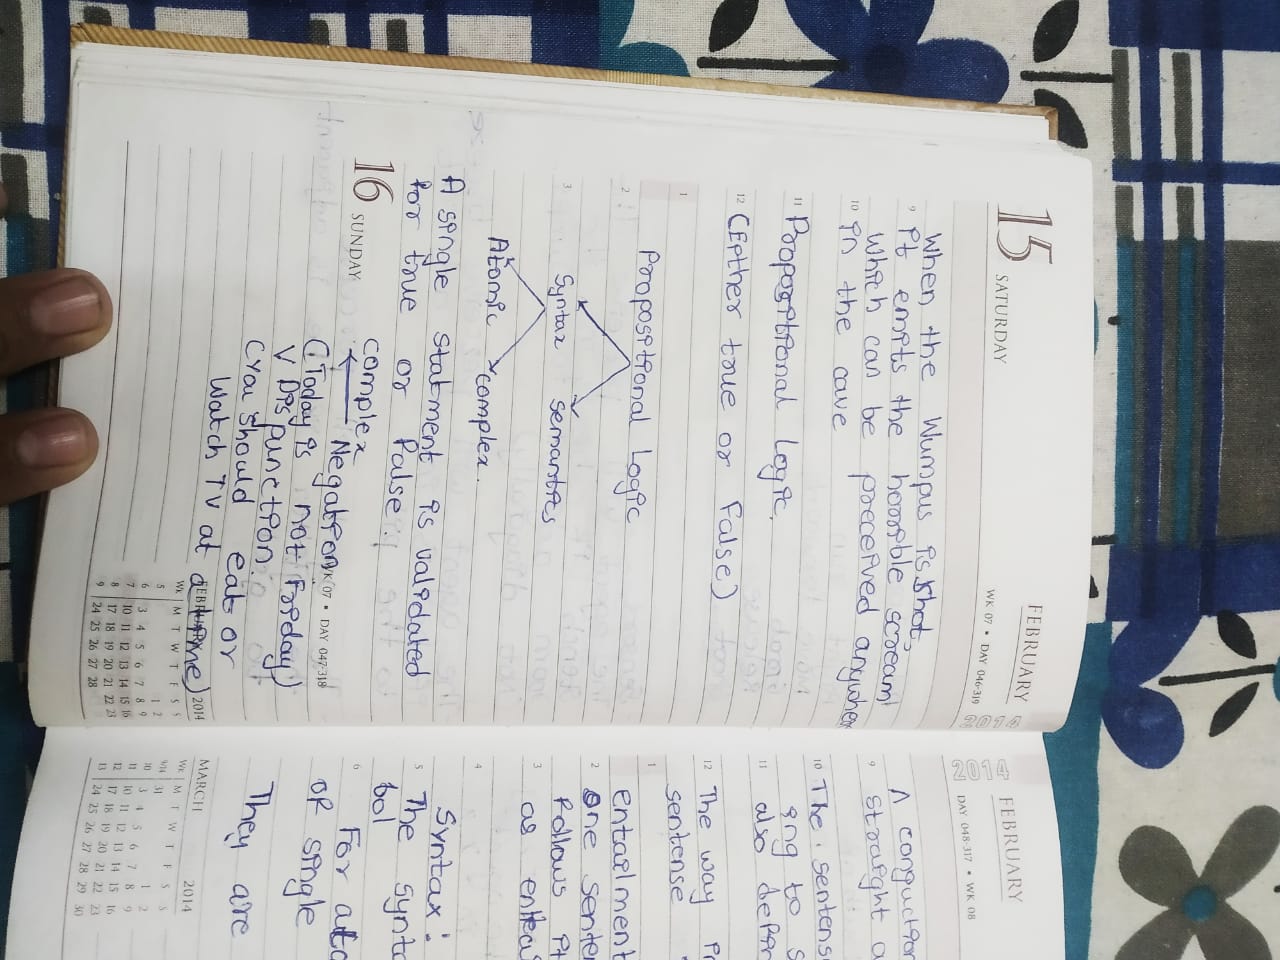 15 SATURDAY
FEBRUARY
WK 07 • DAY 046-319
2014
When the Wumpus is shot,
9 it emits the horrible scream
which can be preceived anywhere
10 in the cave
11 Propositional Logic.
12 (Either true or False)
1
Propositional Logic
2
3 Syntax Semantics
Atomic complex.
A single statment is validated
for true or false.
16 SUNDAY
complex
Negation
WK 07 • DAY 047-318
(Today is not Friday)
V Disjunction.
(You should eat or
Watch TV at a time)
FEBRUARY 2014
Wk M T W T F S S
5 1 2
6 3 4 5 6 7 8 9
7 10 11 12 13 14 15 16
8 17 18 19 20 21 22 23
9 24 25 26 27 28
2014
FEBRUARY
DAY 048-317 • WK 08
Λ
9 straight
10 The sentens
ing to
11 also
12 The way
sentense
1
entailment
2 one
follows it
3 as
4
Syntax:
5 The
bol
6 For
of single
They are
MARCH 2014
Wk M T W T F S S
9/14 31 1 2
10 3 4 5 6 7 8 9
11 10 11 12 13 14 15 16
12 17 18 19 20 21 22 23
13 24 25 26 27 28 29 30